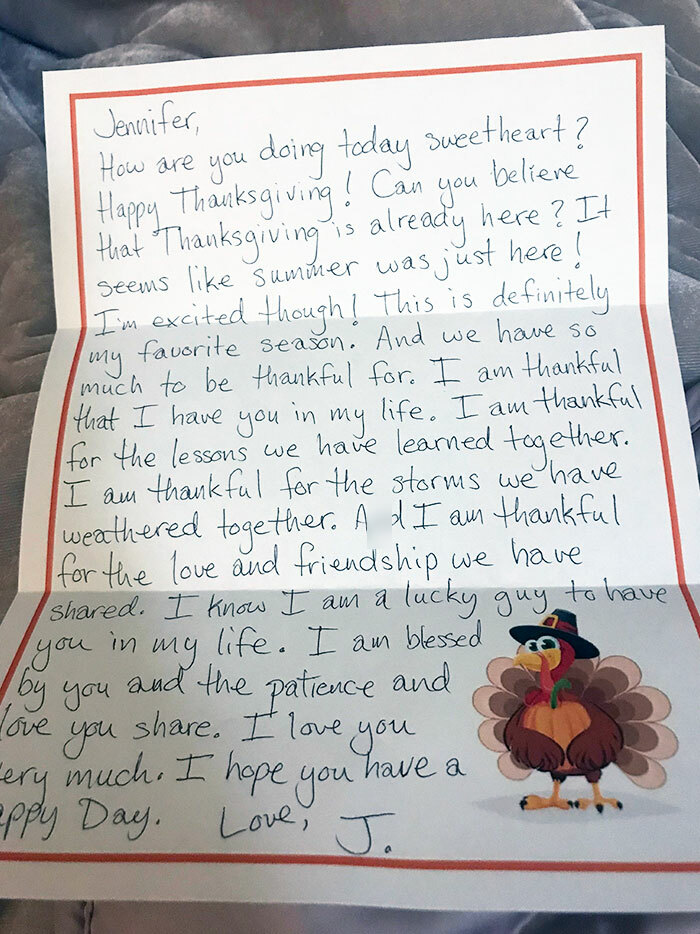 Jennifer,
How are you doing today sweetheart?
Happy Thanksgiving! Can you believe
that Thanksgiving is already here? It
seems like summer was just here!
I'm excited though! This is definitely
my favorite season. And we have so
much to be thankful for. I am thankful
that I have you in my life. I am thankful
for the lessons we have learned together.
I am thankful for the storms we have
weathered together. A d I am thankful
for the love and friendship we have
shared. I know I am a lucky guy to have
you in my life. I am blessed
by you and the patience and
love you share. I love you
ery much. I hope you have a
appy Day. Love, J.